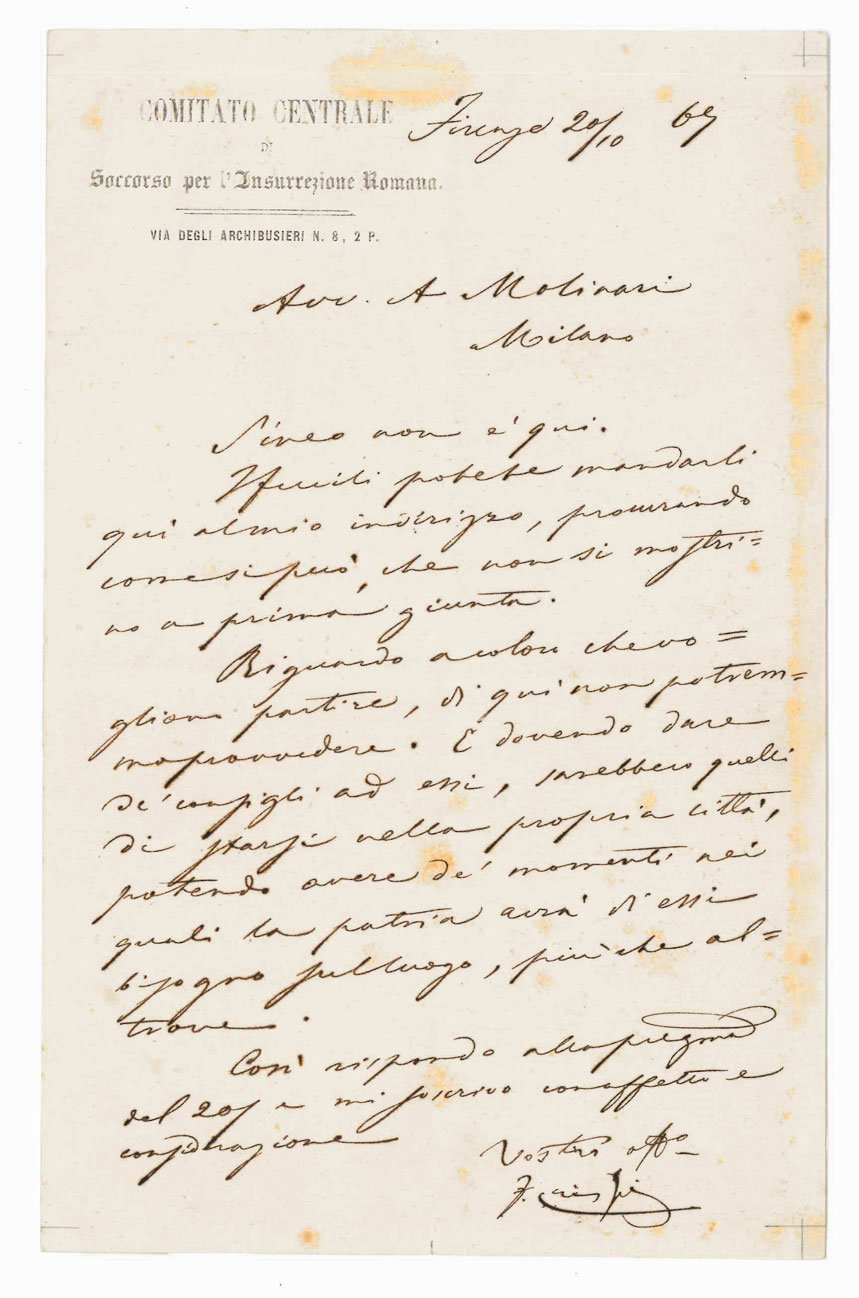 COMITATO CENTRALE
DI
Soccorso per l'Insurrezione Romana.
VIA DEGLI ARCHIBUSIERI N. 8, 2 P.
Firenze 20/10 67
Avv. A Molinari
Milano
Sineo non è qui.
I fucili potete mandarli
qui al mio indirizzo, procurando
come si può, che non si mostri=
no a prima giunta.
Riguardo a coloro che vo=
gliono partire, di qui non potrem=
mo provvedere. E dovendo dare
de' consigli ad essi, sarebbero quelli
di starsi nella propria città,
potendo avere de' momenti nei
quali la patria avrà di essi
bisogno sul luogo, più che al=
trove.
Così rispondo alla pregma
del 20 e mi soscrivo con affetto e
considerazione
Vostro affo
F. Crispi